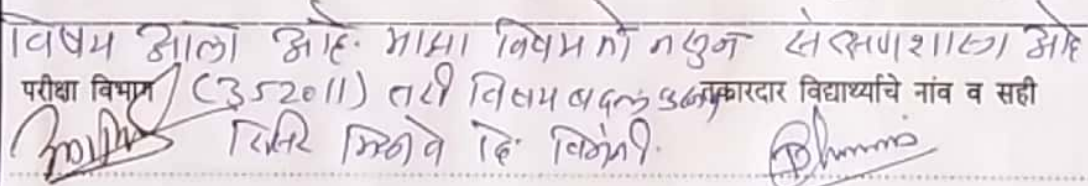 विषय आला आहे. माझा विषय तो नसुन संरक्षणशास्त्र आहे
परीक्षा विभाग (352011) तरी विषय बदलुन तक्रारदार विद्यार्थ्याचे नांव व सही
मिळावे हि विनंती.